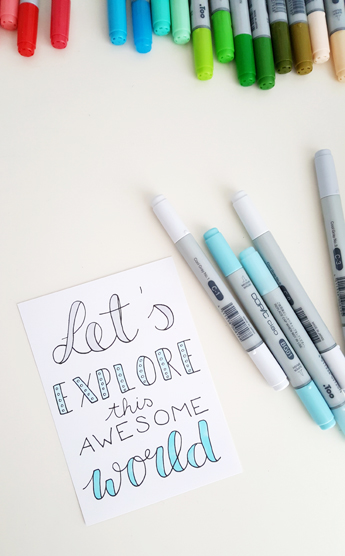 Let's
EXPLORE
this
AWESOME
world
COPIC ciao
.Too
.Too